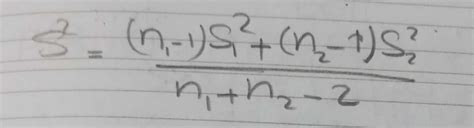 S² = (n₁-1)S₁² + (n₂-1)S₂² / n₁+n₂-2